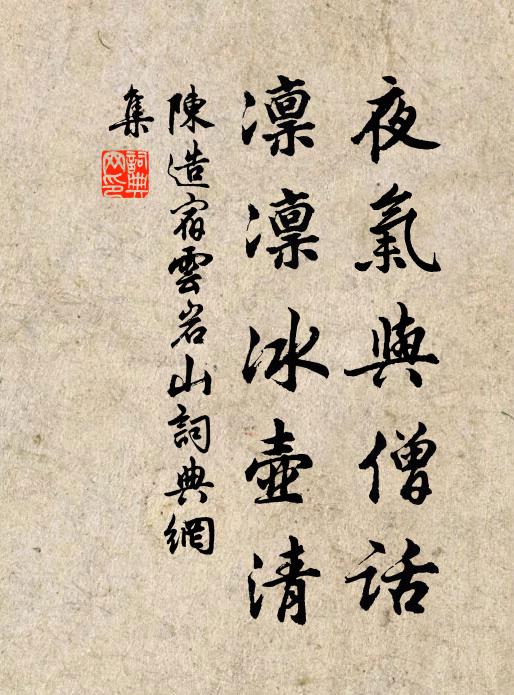 夜氣與僧話
凛凛冰壺清
陳造宿雲岩山詞典網
集
詞典網印